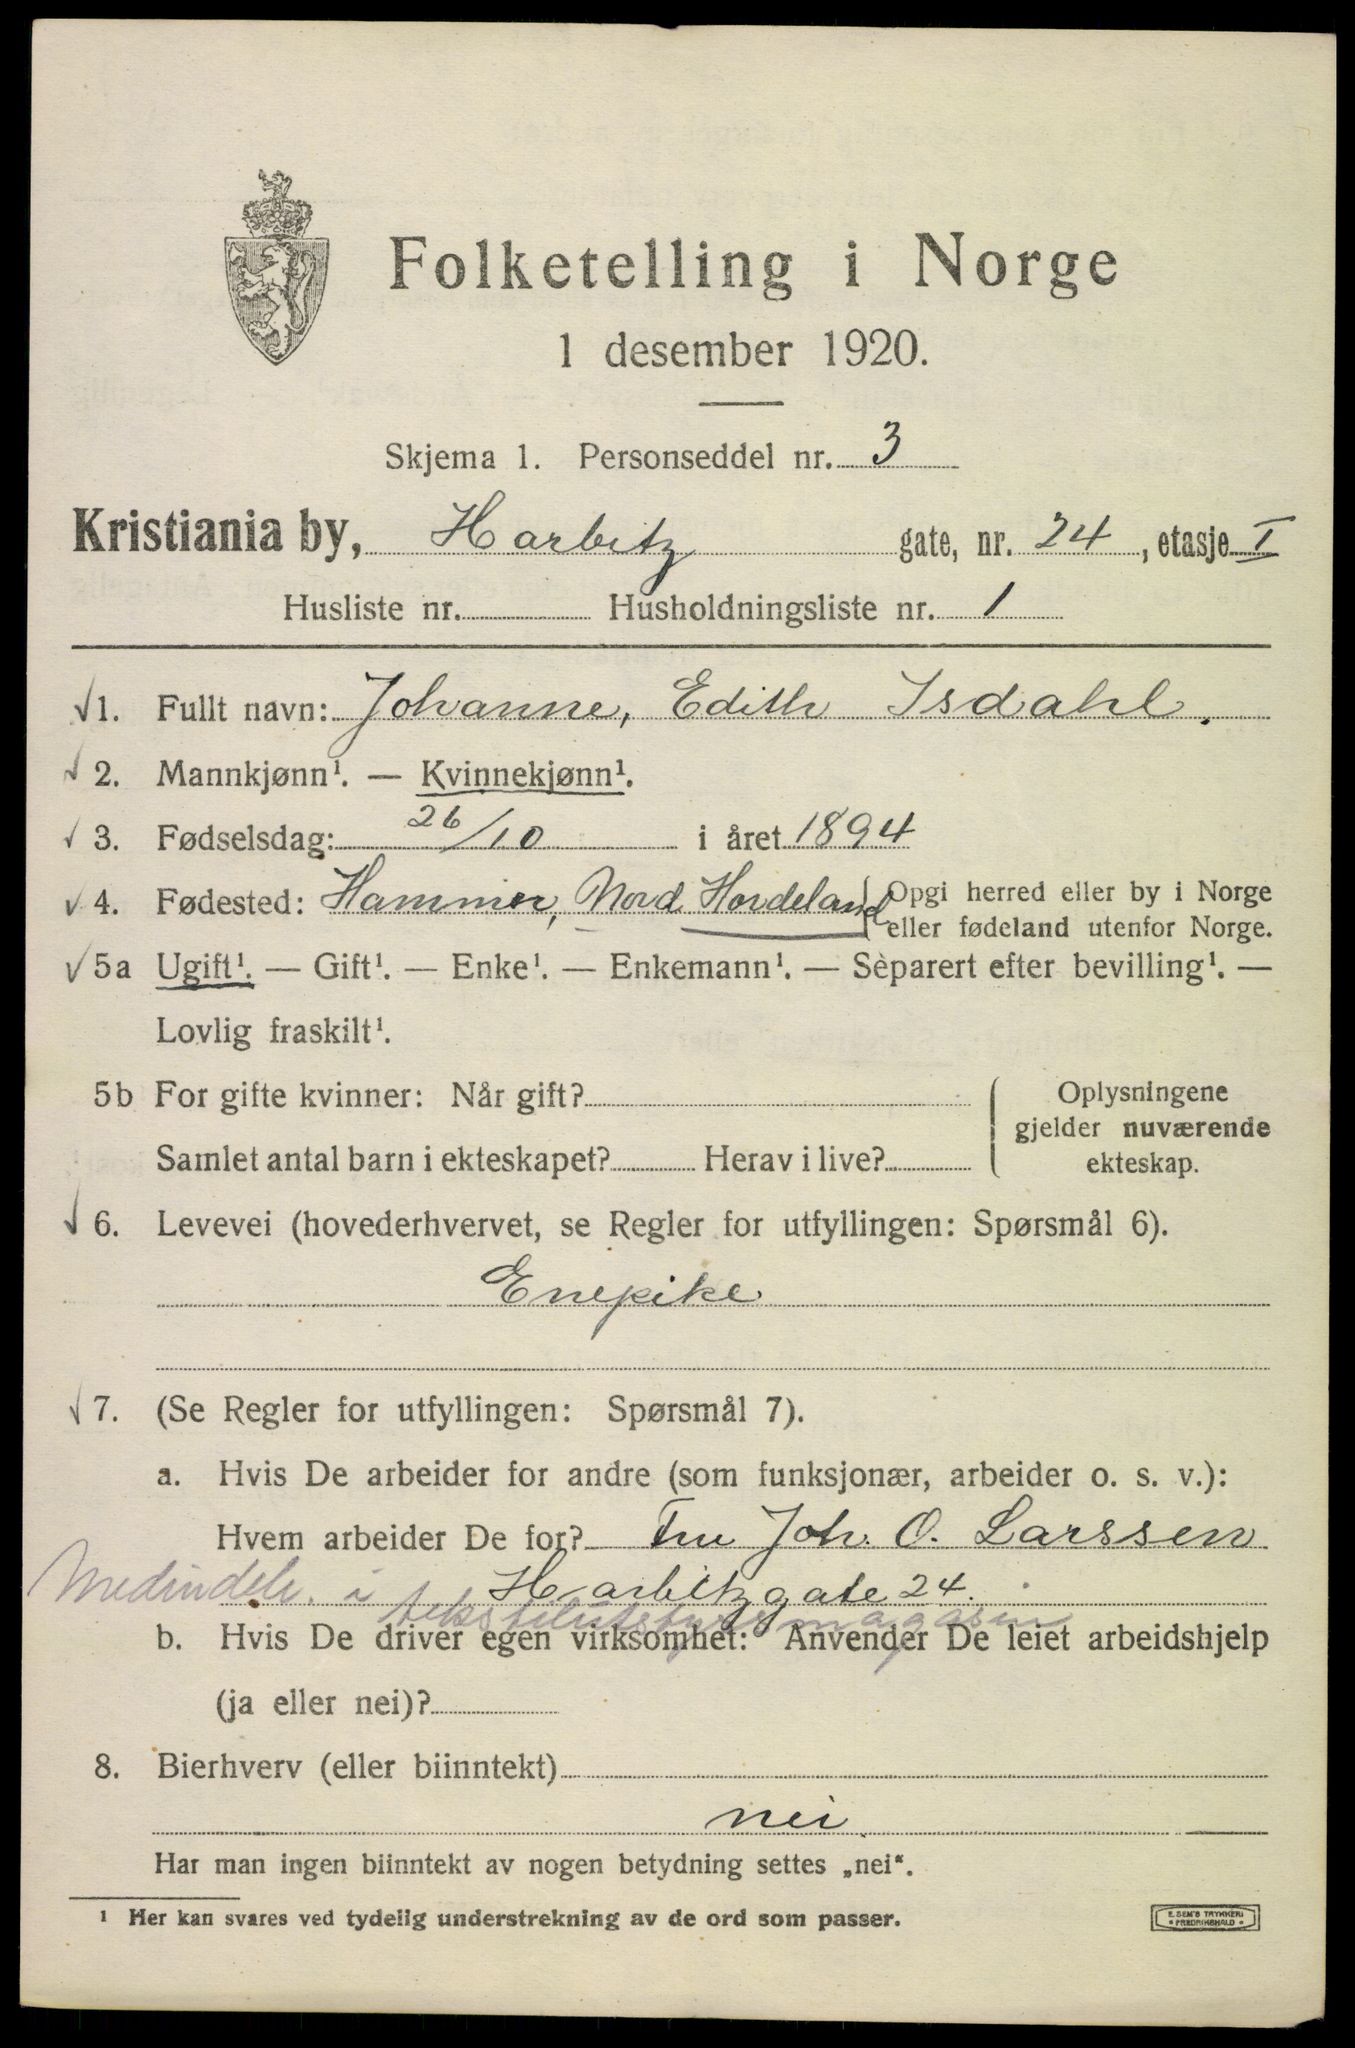 Folketelling i Norge
1 desember 1920.
Skjema 1. Personseddel nr. 3
Kristiania by, Harbitz gate, nr. 24, etasje I
Husliste nr. Husholdningsliste nr. 1
1. Fullt navn: Johanne, Edith Isdahl.
2. Mannkjønn¹. — Kvinnekjønn¹.
3. Fødselsdag: 26/10 i året 1894
4. Fødested: Hammer, Nord Hordeland { Opgi herred eller by i Norge
eller fødeland utenfor Norge.
5a Ugift¹. — Gift¹. — Enke¹. — Enkemann¹. — Sèparert efter bevilling¹. —
Lovlig fraskilt¹.
5b For gifte kvinner: Når gift?
Samlet antal barn i ekteskapet? Herav i live?
Oplysningene
gjelder nuværende
ekteskap.
6. Levevei (hovederhvervet, se Regler for utfyllingen: Spørsmål 6).
Enepike
7. (Se Regler for utfyllingen: Spørsmål 7).
a. Hvis De arbeider for andre (som funksjonær, arbeider o. s. v.):
Hvem arbeider De for? Fru Joh. O. Larssen
Harbitzgate 24.
Medindeh. i tekstilutstyrsmagasin
b. Hvis De driver egen virksomhet: Anvender De leiet arbeidshjelp
(ja eller nei)?
8. Bierhverv (eller biinntekt)
nei
Har man ingen biinntekt av nogen betydning settes „nei“.
¹ Her kan svares ved tydelig understrekning av de ord som passer.
E. SEM'S TRYKKERI
FREDRIKSHALD